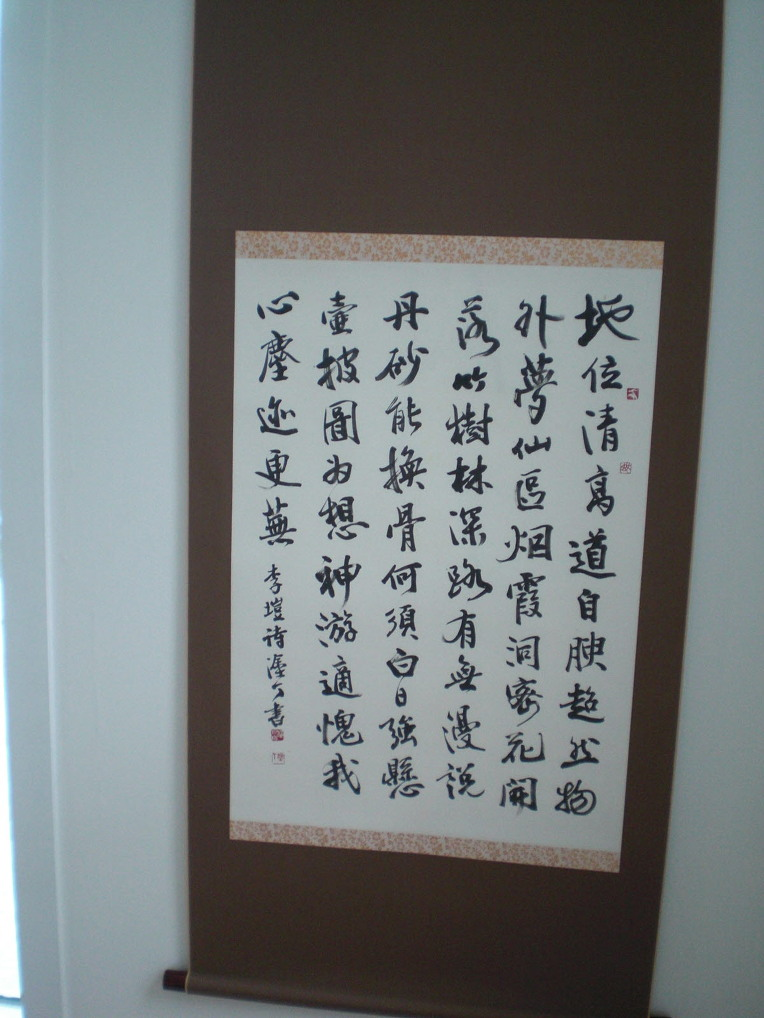 地位清高道自腴超然物
外夢仙區烟霞洞密花開
落竹樹林深路有無漫説
丹砂能換骨何須白日強懸
壺披圖为想神游適愧我
心塵迹更蕪
李塏诗潘公書